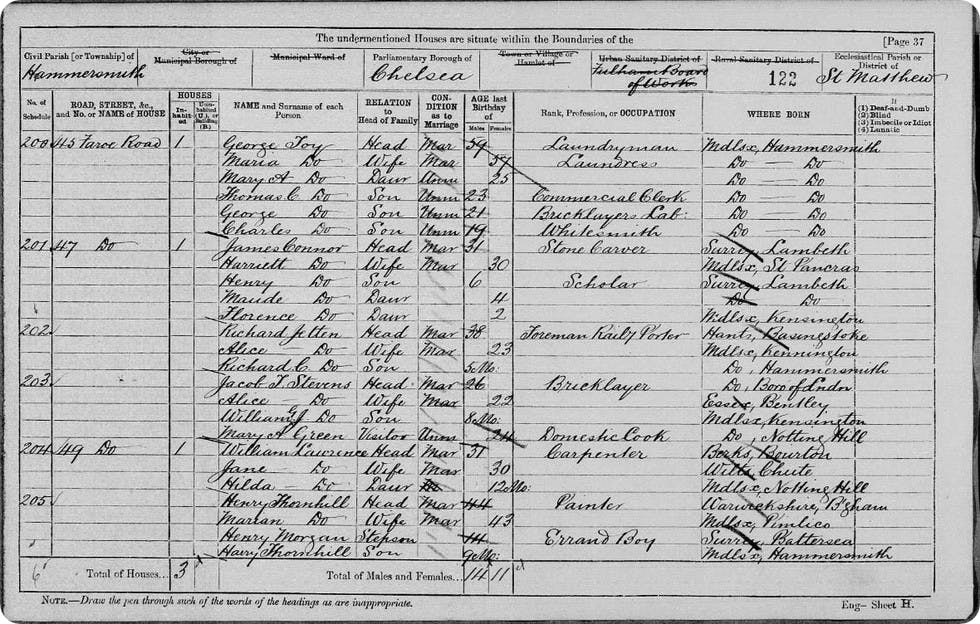 The undermentioned Houses are situate within the Boundaries of the
[Page 37
Civil Parish [or Township] of
Hammersmith
City or Municipal Borough of
Municipal Ward of
Parliamentary Borough of
Chelsea
Town or Village or Hamlet of
Urban Sanitary District of
Fulham Board of Works
Rural Sanitary District of
122
Ecclesiastical Parish or District of
St. Matthew
No. of Schedule
ROAD, STREET, &c., and No. or NAME of HOUSE
HOUSES
In-habit-ed
Unin-habited (U.), or Building (B.)
NAME and Surname of each Person
RELATION to Head of Family
CON-DITION as to Marriage
AGE last Birthday of
Males
Females
Rank, Profession, or OCCUPATION
WHERE BORN
If
(1) Deaf-and-Dumb
(2) Blind
(3) Imbecile or Idiot
(4) Lunatic
200 45 Faroe Road 1 George Joy Head Mar 59 Laundryman Mdlsx, Hammersmith
Maria Do Wife Mar 57 Laundress Do — Do
Mary A Do Daur Unm 25 Do — Do
Thomas C. Do Son Unm 23 Commercial Clerk Do — Do
George Do Son Unm 21 Bricklayers Lab: Do — Do
Charles Do Son Unm 19 Whitesmith Do — Do
201 47 Do 1 James Connor Head Mar 31 Stone Carver Surrey, Lambeth
Harriett Do Wife Mar 30 Mdlsx, St Pancras
Henry Do Son 6 Scholar Surrey, Lambeth
Maude Do Daur 4 Do Do
Florence Do Daur 2 Mdlsx, Kensington
202 Richard Head Mar 38 Foreman Raily Porter Hants, Basingstoke
Alice Do Wife Mar 23 Mdlsx, Kennington
Richard C. Do Son 5 Mo: Do, Hammersmith
203 Jacob T. Stevens Head Mar 26 Bricklayer Do, Boro of Lndon
Alice — Do Wife Mar 22 Essex, Bentley
William G J Do Son 8 Mo: Mdlsx, Kensington
Mary A Green Visitor Unm 24 Domestic Cook Do, Notting Hill
204 49 Do 1 William Lawrence Head Mar 31 Carpenter Berks, Bourton
Jane Do Wife Mar 30 Wilts, Chute
Hilda — Do Daur 12 Mo: Mdlsx, Notting Hill
205 Henry Thornhill Head Mar 44 Painter Warwickshire, B'gham
Marian Do Wife Mar 43 Mdlsx, Pimlico
Henry Morgan Stepson 14 Errand Boy Surrey, Battersea
Harry Thornhill Son 9 Mo: Mdlsx, Hammersmith
6 Total of Houses... 3 Total of Males and Females... 14 11
NOTE.—Draw the pen through such of the words of the headings as are inappropriate.
Eng— Sheet H.